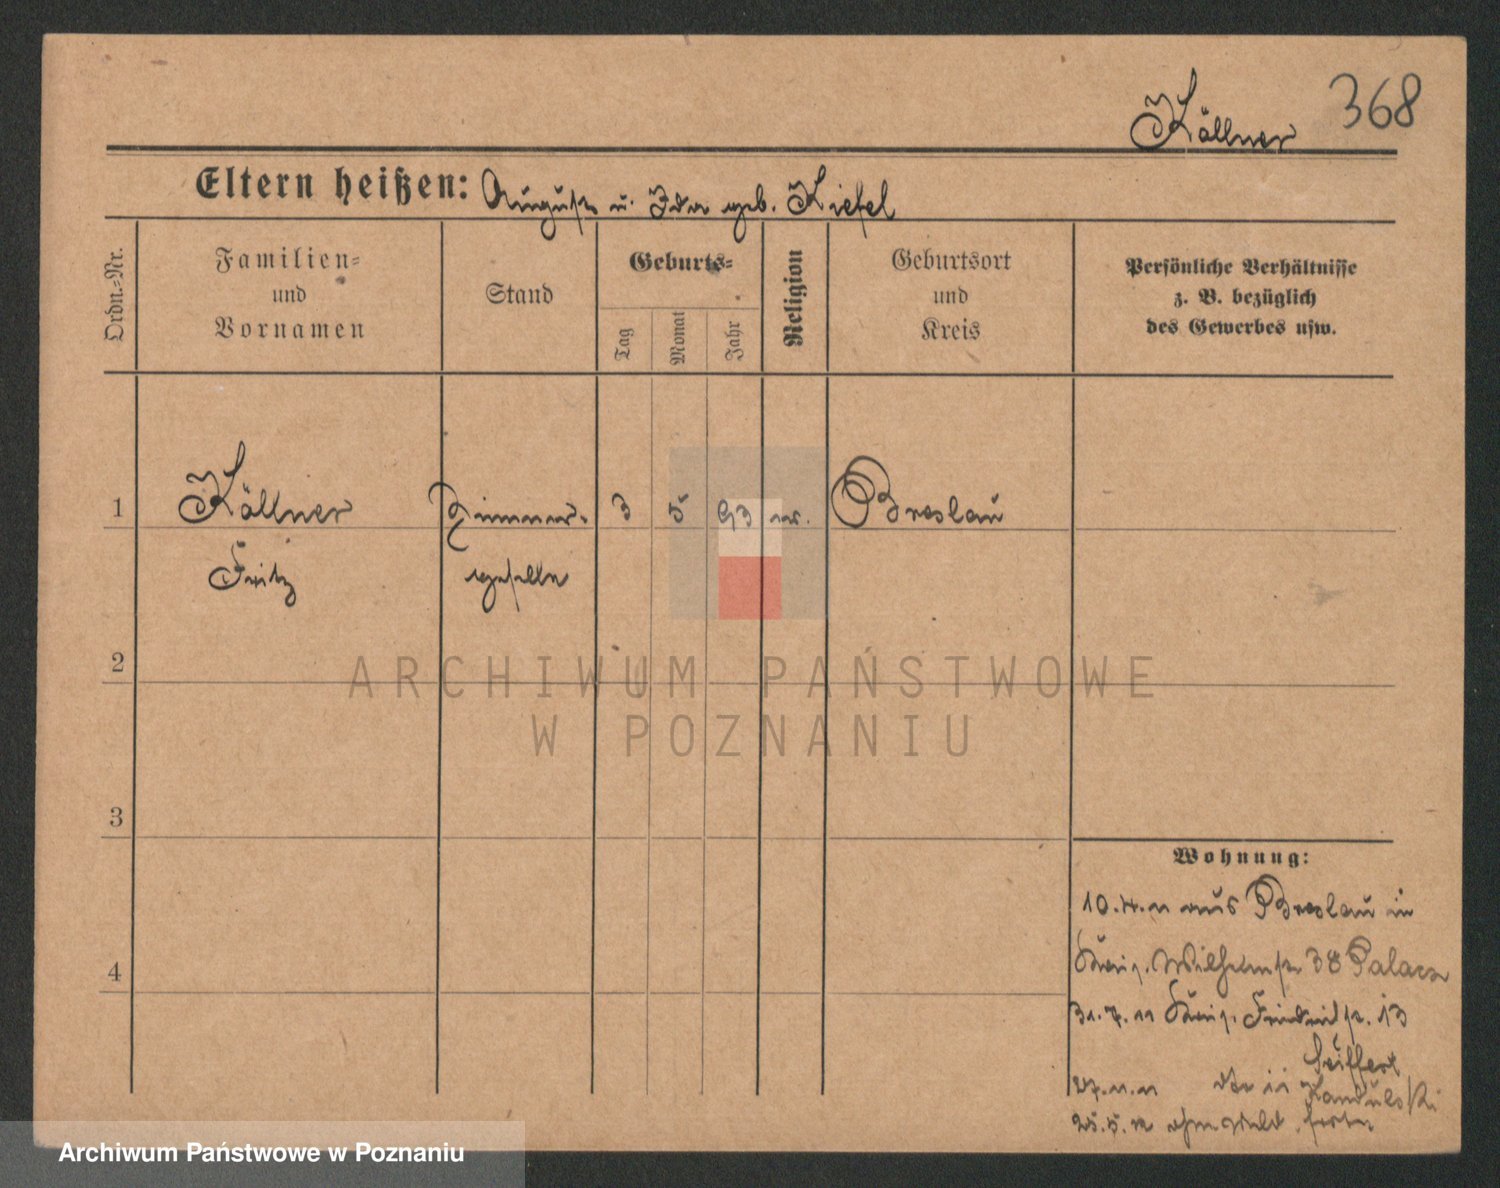 368
Källner
Eltern heißen: August u. Ida geb. Kiefel
Ordn.-Nr.
Familien-
und
Vornamen
Stand
Geburts-
Tag
Monat
Jahr
Religion
Geburtsort
und
Kreis
Persönliche Verhältnisse
z. B. bezüglich
des Gewerbes usw.
1 Källner Zimmer- 3 5 93 ev. Breslau
Fritz geselle
2
3
4
Wohnung:
10.4.11 aus Breslau in
Wilhelmstr. 38 Palacz
31.7.11 Friedrichstr. 13
Seiffert
27.11.11 dto 11 Kandulski
25.5.12 fort
ARCHIWUM PAŃSTWOWE
W POZNANIU
Archiwum Państwowe w Poznaniu